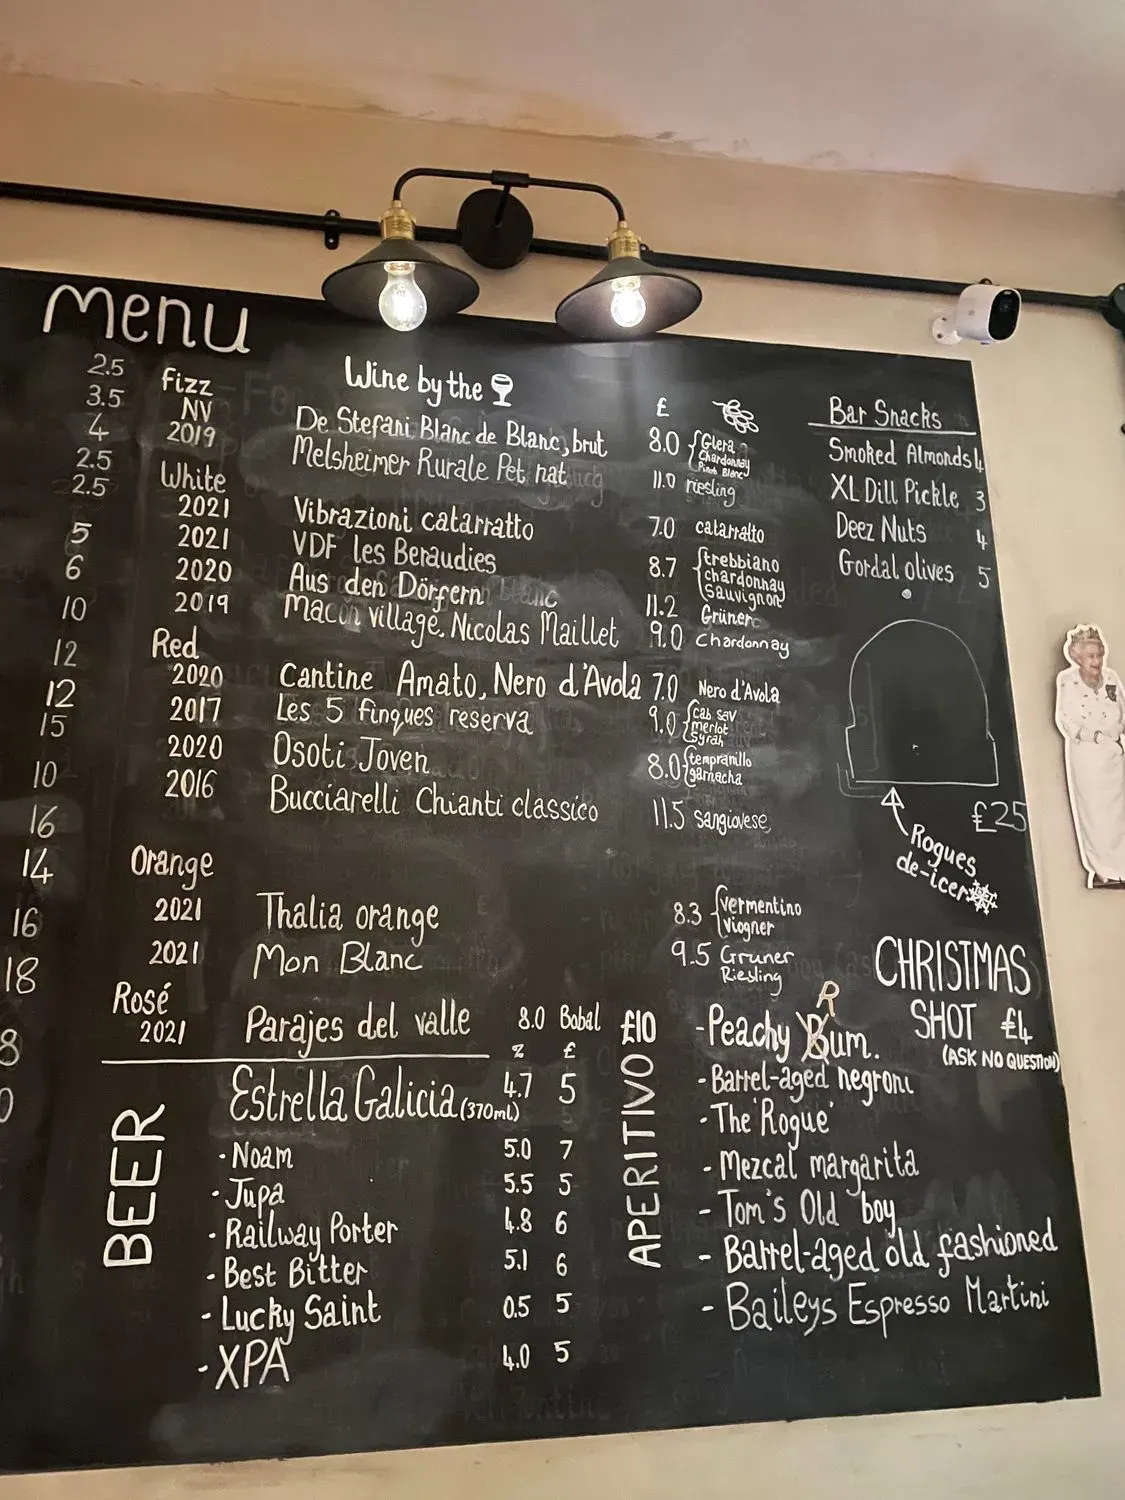 Menu
2.5
3.5
4
2.5
2.5
5
6
10
12
12
15
10
16
14
16
18
8
0
Wine by the
£
Fizz
NV De Stefani Blanc de Blanc, brut 8.0 Glera
Chardonnay
Pinot Blanc
2019 Melsheimer Rurale Pet nat 11.0 riesling
White
2021 Vibrazioni catarratto 7.0 catarratto
2021 VDF les Beraudies 8.7 trebbiano
chardonnay
sauvignon
2020 Aus den Dörfern 11.2 Grüner
2019 Macon village, Nicolas Maillet 9.0 Chardonnay
Red
2020 Cantine Amato, Nero d'Avola 7.0 Nero d'Avola
2017 Les 5 finques reserva 9.0 cab sav
merlot
syrah
2020 Osoti Joven 8.0 tempranillo
garnacha
2016 Bucciarelli Chianti classico 11.5 sangiovese
Orange
2021 Thalia orange 8.3 vermentino
viogner
2021 Mon Blanc 9.5 Gruner
Riesling
Rosé
2021 Parajes del valle 8.0 Bobal
BEER
% £
Estrella Galicia (370ml) 4.7 5
- Noam 5.0 7
- Jupa 5.5 5
- Railway Porter 4.8 6
- Best Bitter 5.1 6
- Lucky Saint 0.5 5
- XPA 4.0 5
Bar Snacks
Smoked Almonds 4
XL Dill Pickle 3
Deez Nuts 4
Gordal olives 5
£25
Rogues
de-icer
CHRISTMAS
SHOT £4
(ASK NO QUESTION)
APERITIVO £10
R
- Peachy Bum.
- Barrel-aged negroni
- The 'Rogue'
- Mezcal margarita
- Tom's Old boy
- Barrel-aged old fashioned
- Baileys Espresso Martini